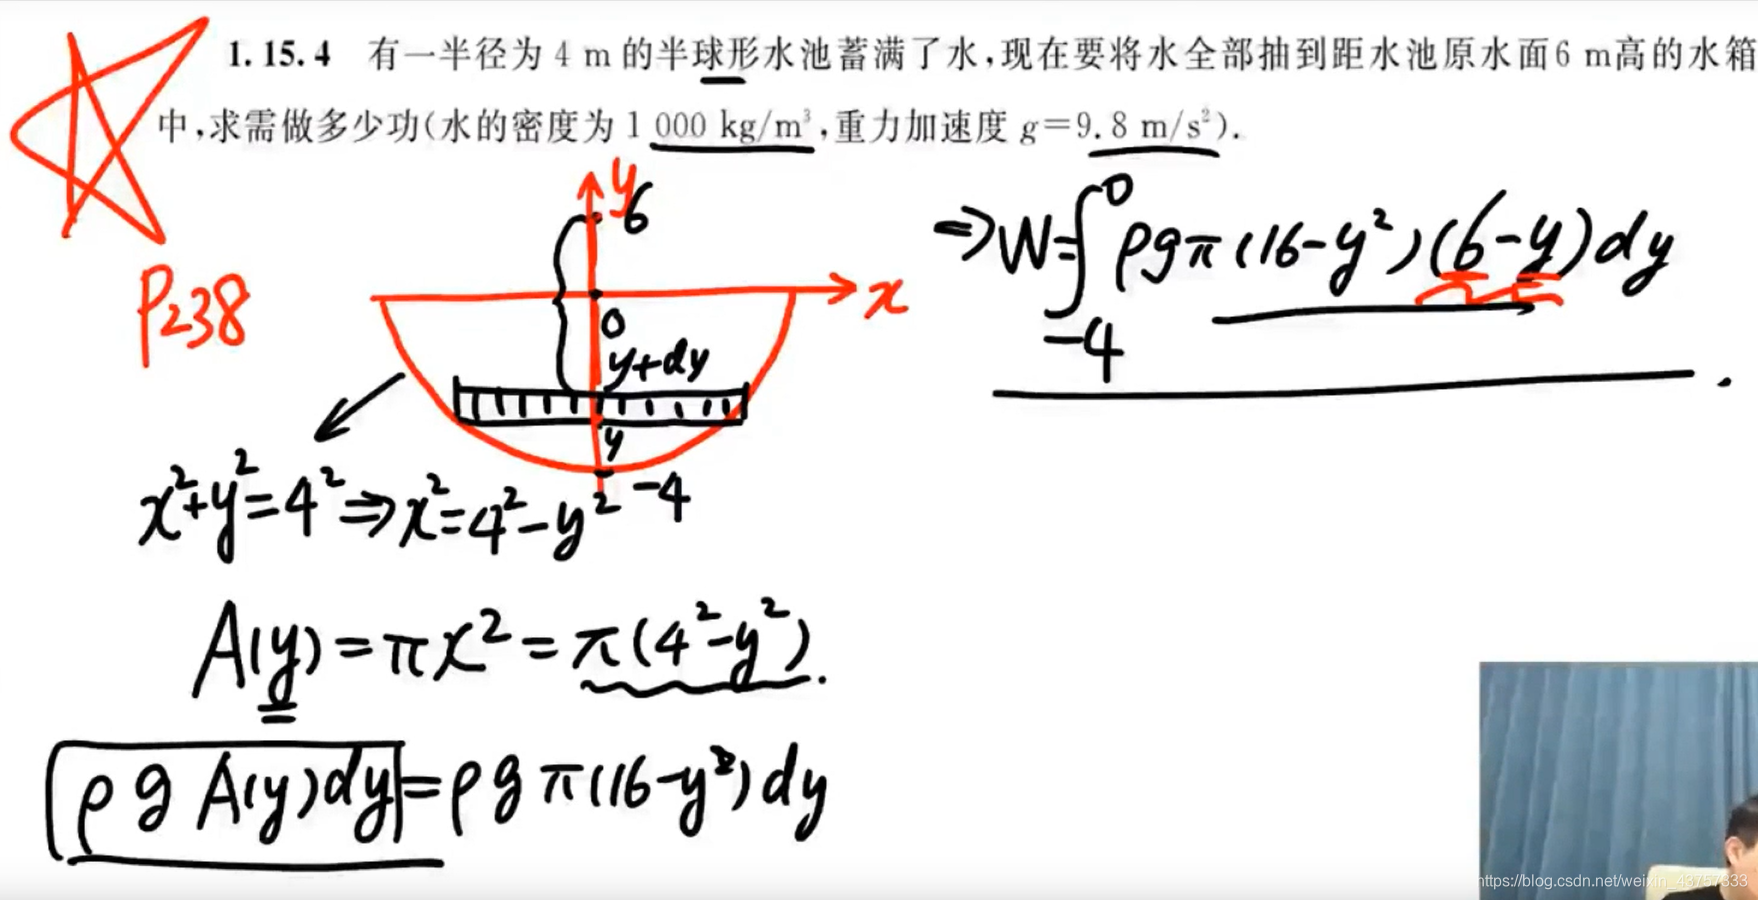 1.15.4 有一半径为 4 m 的半球形水池蓄满了水,现在要将水全部抽到距水池原水面6 m高的水箱
中,求需做多少功(水的密度为 1 000 kg/m³,重力加速度 g=9.8 m/s²).
P238
y
6
x
0
y+dy
y
-4
⇒W=∫₋₄⁰ ρgπ(16-y²)(6-y)dy
x²+y²=4²⇒x²=4²-y²
A(y)=πx²=π(4²-y²).
ρgA(y)dy=ρgπ(16-y²)dy
https://blog.csdn.net/weixin_43757333